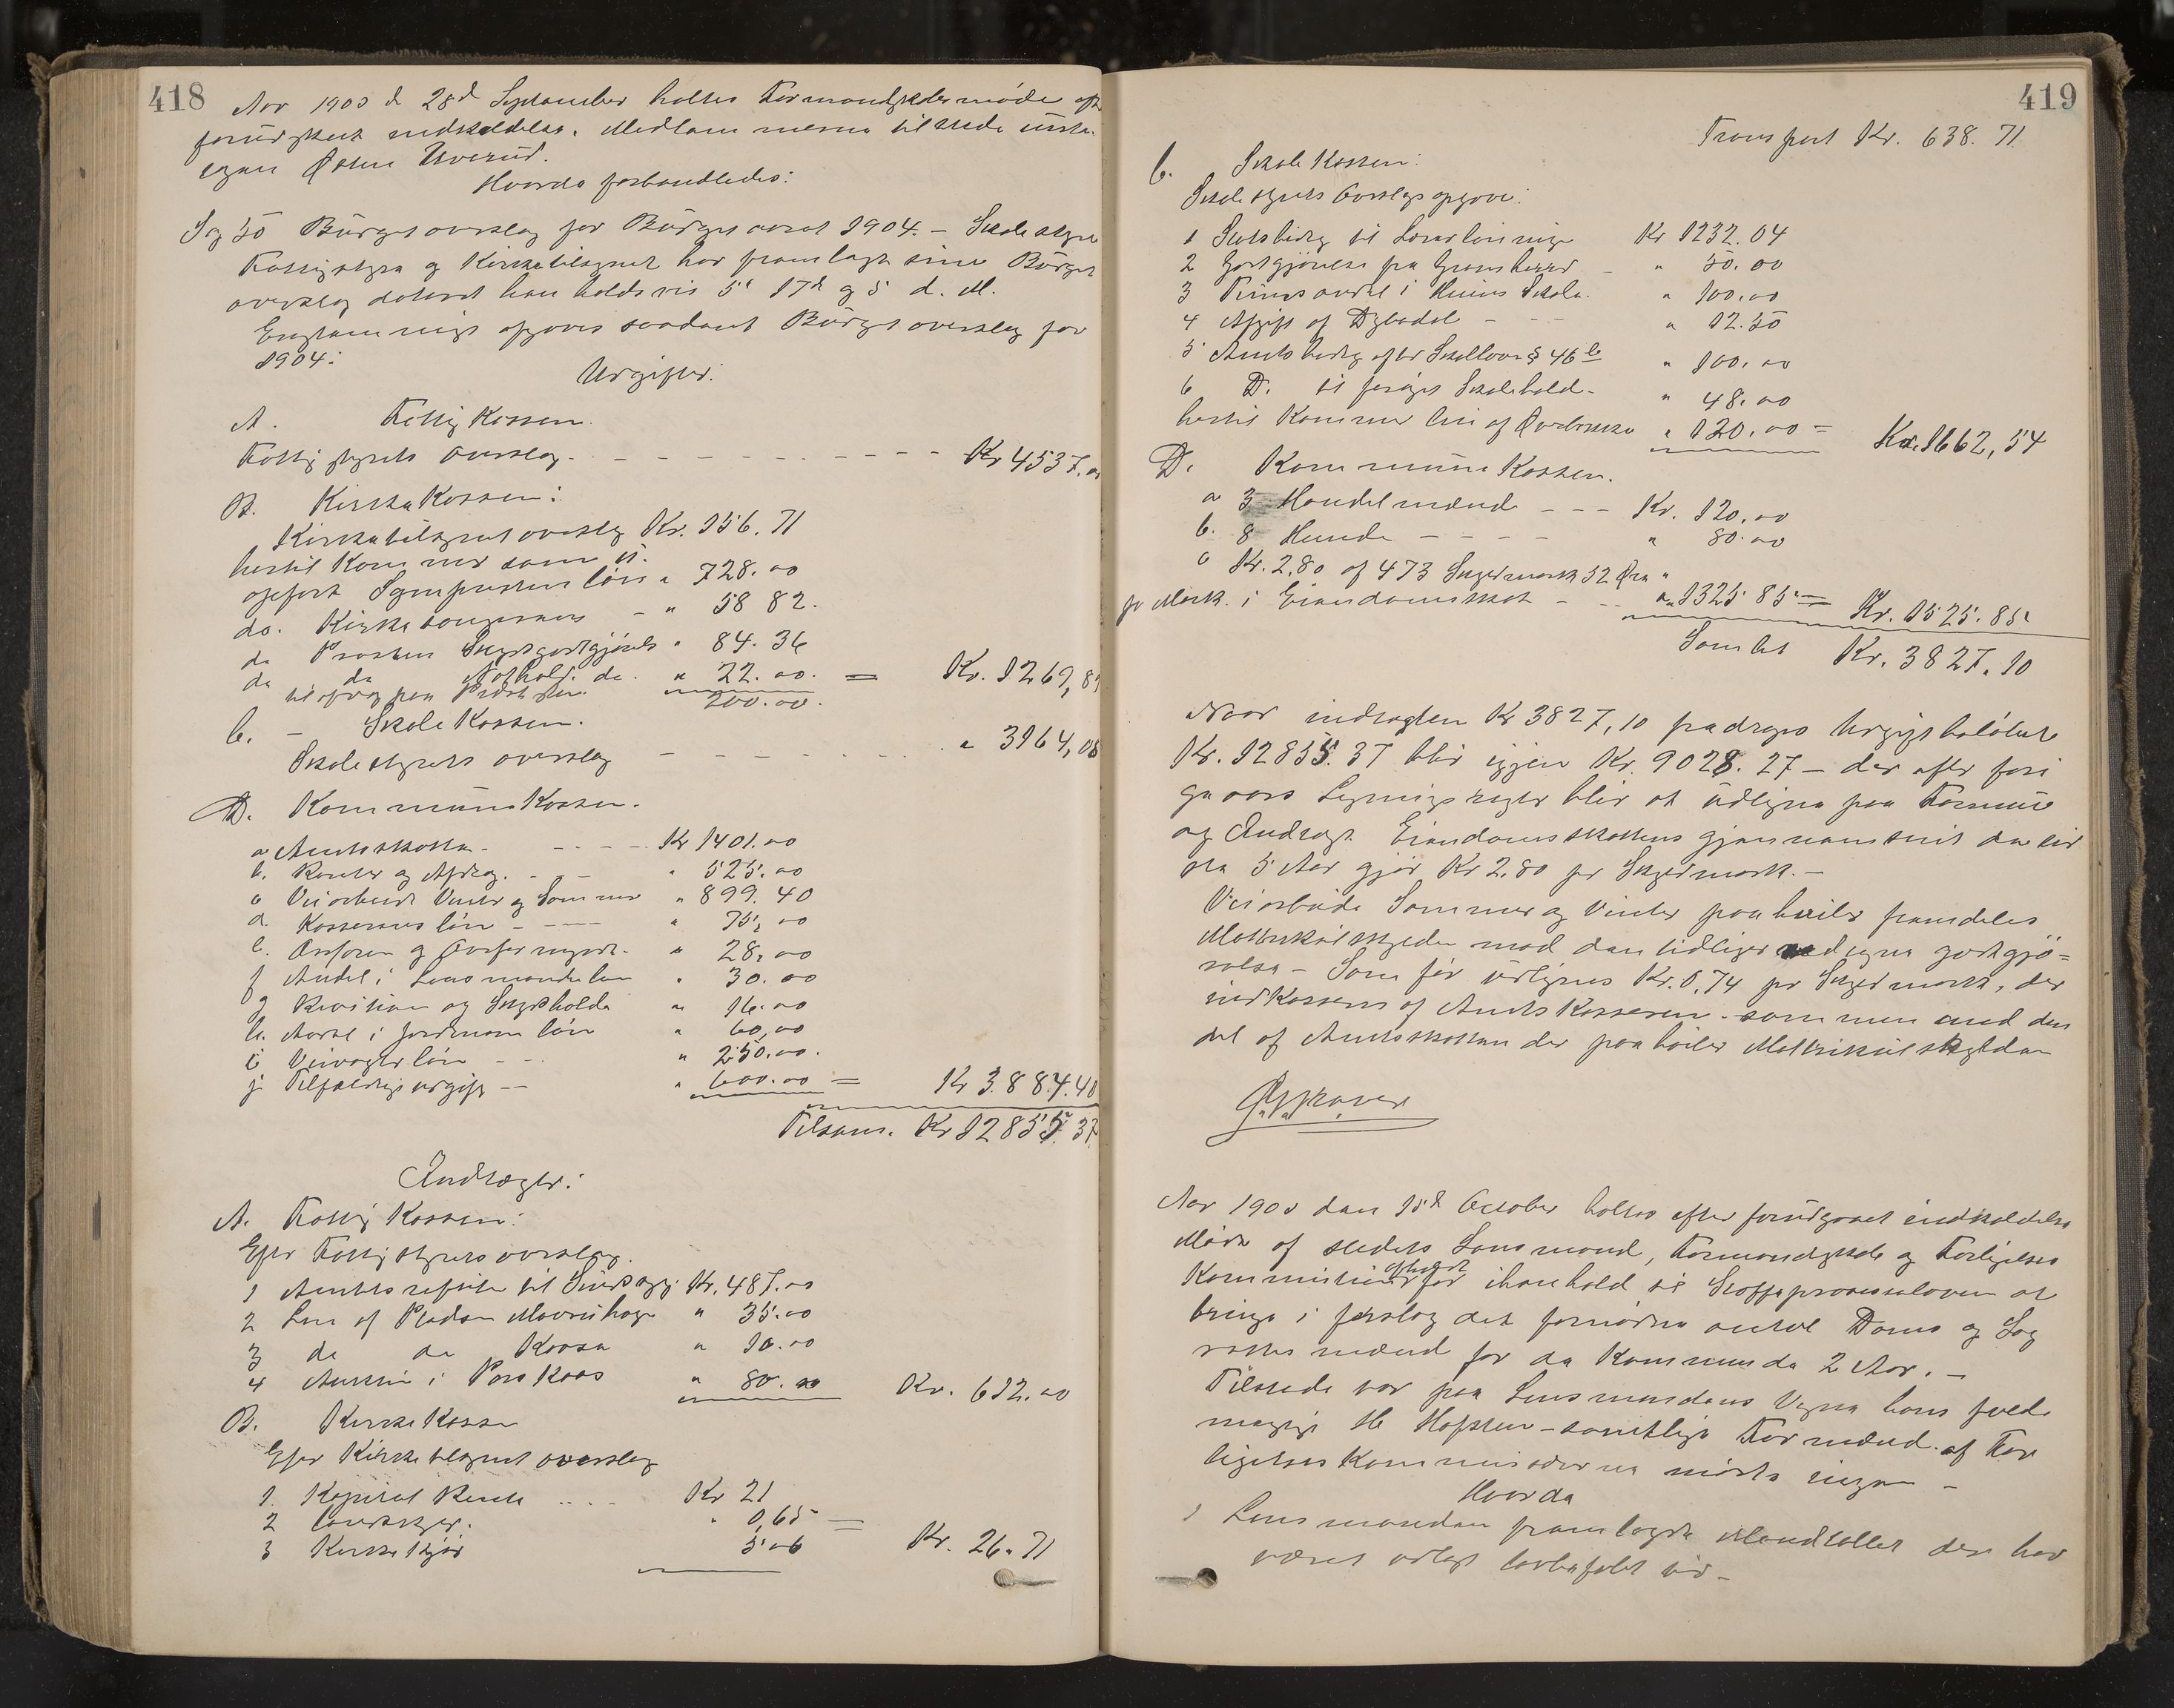 418
Aar 1903 d. 28d September holtes Formandskabsmøde eft
forudgaaet indkaldelse. Medlemmerne tilstede undta-
gen Østen Uverud.
Hvorda forhandledes:
Sag 50 Büdgetoverslag for Büdgetaaret 1904. – Skolestyre
Fattigstyre og Kirketilsynet har fremlagt sine Büdget
overslag dateret henholdsvis 5t 17d og 5 d. M.
opgjøres saadant Büdgetoverslag for
1904:
Udgifter:
A. Fattig Kassen.
Fattigstyrets overslag. – – – Kr 4537.00
B. Kirke Kassen:
Kirketilsynets overslag Kr. 156.71
hertil kommer som ei
opført Sognpresten løn " 728.00
do. Kirkesangerens – " 58 82.
do Prosten Skydsgodtgjørels " 84.36
do do Nathold. do. " 22.00. = Kr. 1269,89
til afdrag paa 200.00.
C. – Skole Kassen.
Skolestyrets overslag – – – " 3164,08
D. Kommune Kassen.
a Amtsskatten – – – Kr 1401.00
b. Renter og Afdrag. – – " 525.00
c Veiarbeide Vinter og Sommer " 899.40
d. Kassererens løn – – – " 75,00
e. Ordføren og – " 28,00
f Andel i Lensmandsløn " 30.00
g Revision og Skydsholde " 16.00
h. Andel i Jordmor løn " 60,00
i Veivogter løn – – " 250.00.
j. Tilfældige udgift – " 600.00 = Kr 3884.40
Tilsam. Kr 12855.37
Indtægter:
A. Fattig Kassen:
Efter Fattigstyrets overslag.
1 Amtets refusion til Sindssyge Kr. 487.00
2 Leie af Pladsen " 35.00
3 do do " 10.00
4 Auktion i " 80.00 Kr. 612.00
B. Kirke Kassen
Efter Kirketilsynet overslag
1. Kapital Rente .... Kr 21
2 " 0,65 =
3 5.06 Kr. 26.71
419
Transport Kr. 638.71
C. Skole Kassen:
Skolestyrets overslags opgave:
1 Statsbidrag til Lærerlønninger Kr 1232.04
2 Godtgjørelse fra Gransherred – " 50.00
3 Tinns andel i Skole. " 100.00
4 Afgift af – – – " 12.50
5 Amtsbidrag efter Skoleloven § 46 b " 100.00
6 D. til forøget Skolehold – " 48.00
hertil kommer leie af " 120.00 = Kr. 1662,54
D. Kommune Kassen.
a 3 Handelsmænd – – – Kr. 120.00
b. 8 Hunde – – – – " 80.00
c Kr. 2,80 af 473 Skyldmark 52 Øre "
pr Mark. i Eiendomsskat – – " 1325 85 = Kr. 1525.85
Samlet Kr. 3827.10
Naar indtægten Kr 3827,10 fradrages Udgiftsbeløbet
Kr. 12855.37 blir igjen Kr. 9028.27 – der efter fori
ge aars Ligningsregler blir at üdligne paa Formue
og Indtægt. Eiendomsskattens gjennemsnit de sid
ste 5 Aar gjør Kr 2,80 pr Skyldmark. –
Veiarbeide Sommer og Vinter paahviler fremdeles
Matrikülskylden mod den tidligere vedtagne godtgjø=
relse – Som før üdlignes Kr. 0,74 pr Skyldmark, der
indkasseres af Amts Kassereren – sammen med den
del af Amtsskatten der paahviler Matrikülskylden
Aar 1903 den 15d October holtes efter forudgaaet indkaldelse
Møde af stedets Lensmand, Formandskab og Forligelses
Kommissionen for i henhold til Straffeprocessloven at
bringe i forslag det fornødne antal Doms og Lag
rettesmænd for de kommende 2 Aar. –
Tilstede var paa Lensmandens Vegne hans fuld-
mægtige H. Hofsten – samtlige Formænd. af For
ligelses Kommissærerne mødte ingen –
Hvorda
1 Lensmanden fremlagde Mandtallet der har
været udlagt lovbefalet tid –